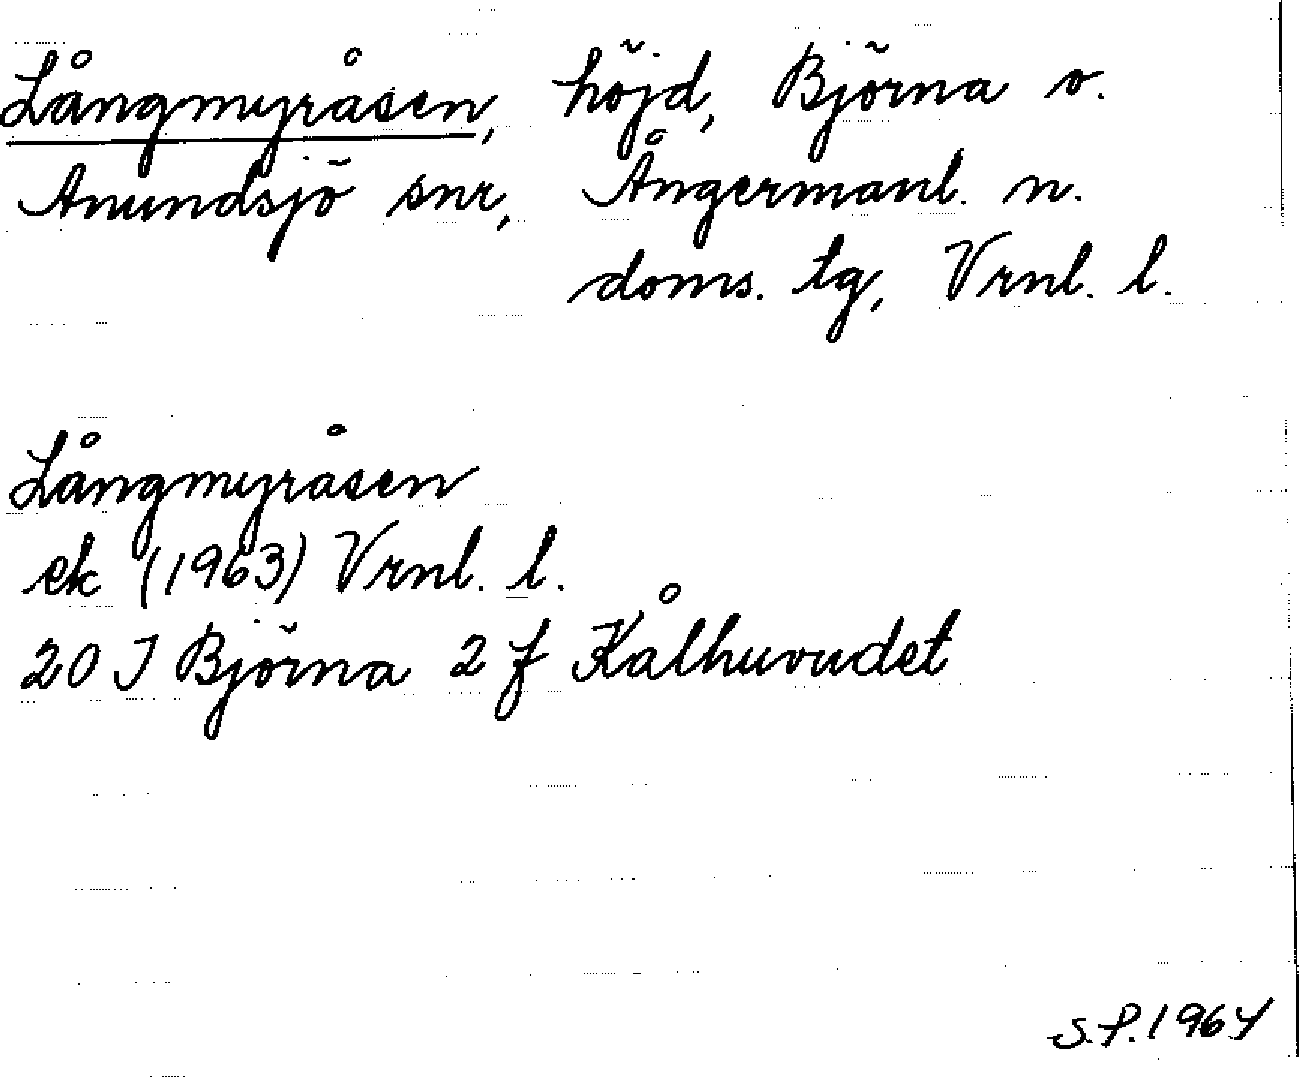 Långmyråsen, höjd, Björna o.
Anundsjö snr, Ångermanl. n.
doms. tg, Vrnl. l.
Långmyråsen
ek (1963) Vrnl. l.
20 I Björna 2 f Kålhuvudet
S.P. 1964